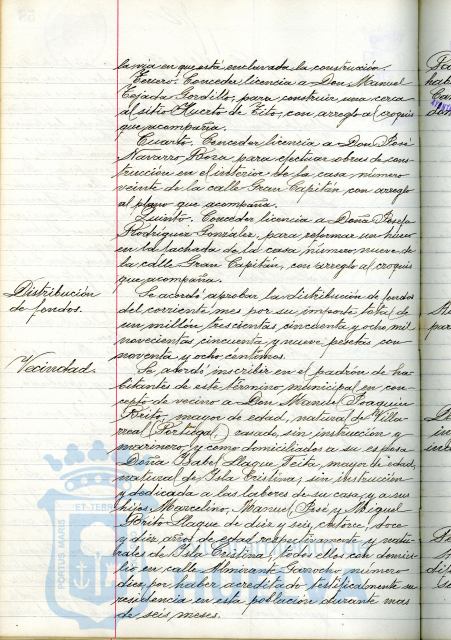 la via en que está enclavada la construccion.
Tercero. Conceder licencia a Don Manuel
Tejada Gordillo, para construir una cerca
al sitio Huerto de Tito, con arreglo al croquis
que acompaña.
Cuarto. Conceder licencia a Don José
Navarro Roza para efectuar obras de cons-
trucción en el interior de la casa número
veinte de la calle Gran Capitán, con arreglo
al plano que acompaña.
Quinto. Conceder licencia a Doña Josefa
Rodríguez González, para reformar un hueco
en la fachada de la casa número nueve de
la calle Gran Capitán, con arreglo al croquis
que acompaña.
Distribución
de fondos.
Se acordó aprobar la distribución de fondos
del corriente mes por su importe total de
un millón trescientas cincuenta y ocho mil
novecientas cincuenta y nueve pesetas con
noventa y ocho centimos.
Vecindad.
Se acordó inscribir en el padrón de ha-
bitantes de este término municipal en con-
cepto de vecino a Don Manuel Joaquin
Brito, mayor de edad, natural de Villa-
rreal (Portugal) casado, sin instrucción y
marinero, y como domiciliados a su esposa
Doña Isabel Llaque Feita, mayor de edad,
natural de Isla Cristina, sin instrucción
y dedicada a las labores de su casa, y a sus
hijos Marcelino, Manuel José y Miguel
Brito Llaque de diez y seis, catorce, doce
y diez años de edad respectivamente y natu-
rales de Isla Cristina, todos ellos con domici-
lio en calle Almirante Garrocho número
diez por haber acreditado testificalmente su
residencia en esta población durante mas
de seis meses.
PORTUS MARIS
ET TERRAE
HUELVA